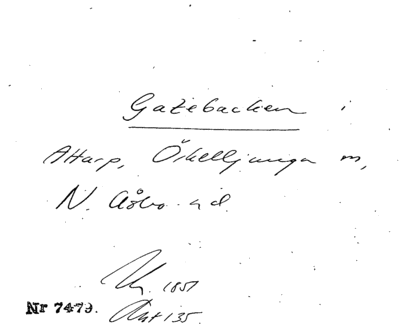 Gatebacken i
Attarp, Örkelljunga
N. Åsbo
1851
Nr 7479.
135.